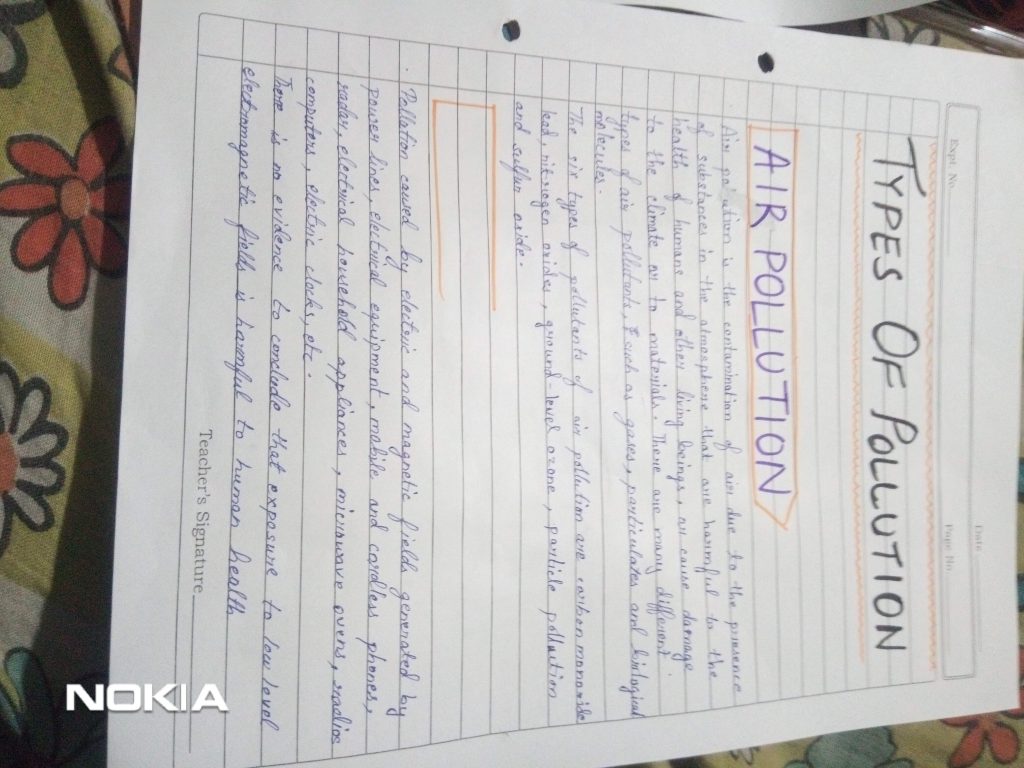 Date
Expt. No.
Page No.
TYPES OF POLLUTION
AIR POLLUTION
Air pollution is the contamination of air due to the presence
of substances in the atmosphere that are harmful to the
health of humans and other living beings, or cause damage
to the climate or to materials. There are many different
types of air pollutants, such as gases, particulates and biological
molecules.
The six types of pollutants of air pollution are carbon monoxide
lead, nitrogen oxides, ground-level ozone, particle pollution
and sulfur oxide.
Pollution caused by electric and magnetic fields generated by
power lines, electrical equipment, mobile and cordless phones,
radar, electrical household appliances, microwave ovens, radios
computers, electric clocks, etc.
There is no evidence to conclude that exposure to low level
electromagnetic fields is harmful to human health
Teacher's Signature
NOKIA